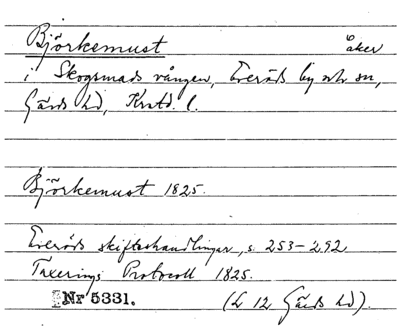 Björkemust åker
i Skogsmads vången, Everöds by och sn,
Gärds hd, Krstd. l.
Björkemust 1825.
Everöds skifteshandlingar, s. 253-292
Taxerings Protocoll 1825.
Nr 5331. (L 12 Gärds hd).